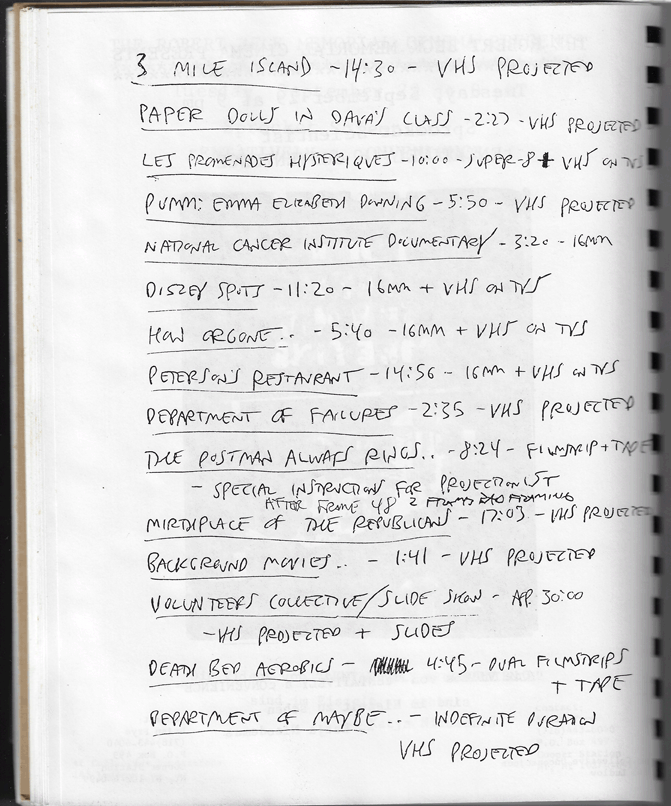 3 MILE ISLAND - 14:30 - VHS PROJECTED
PAPER DOLLS IN DAVA'S CLASS - 2:27 - VHS PROJECTED
LES PROMENADES HYSTERIQUES - 10:00 - SUPER-8 + VHS ON TVS
PUMM: EMMA ELIZABETH DOWNING - 5:50 - VHS PROJECTED
NATIONAL CANCER INSTITUTE DOCUMENTARY - 3:20 - 16MM
DISZEY SPOTS - 11:20 - 16MM + VHS ON TVS
HOW ORGONE.. - 5:40 - 16MM + VHS ON TVS
PETERSON'S RESTAURANT - 14:56 - 16MM + VHS ON TVS
DEPARTMENT OF FAILURES - 2:35 - VHS PROJECTED
THE POSTMAN ALWAYS RINGS.. - 8:24 - FILMSTRIP + TAPE
- SPECIAL INSTRUCTIONS FOR PROJECTIONIST
AFTER FRAME 48 2 FRAMES FRAMING
MIRTHPLACE OF THE REPUBLICANS - 17:03 - VHS PROJECTED
BACKGROUND MOVIES.. - 1:41 - VHS PROJECTED
VOLUNTEERS COLLECTIVE/SLIDE SHOW - AP. 30:00
- VHS PROJECTED + SLIDES
DEATH BED AEROBICS - 4:45 - DUAL FILMSTRIPS
+ TAPE
DEPARTMENT OF MAYBE.. - INDEFINITE DURATION
VHS PROJECTED